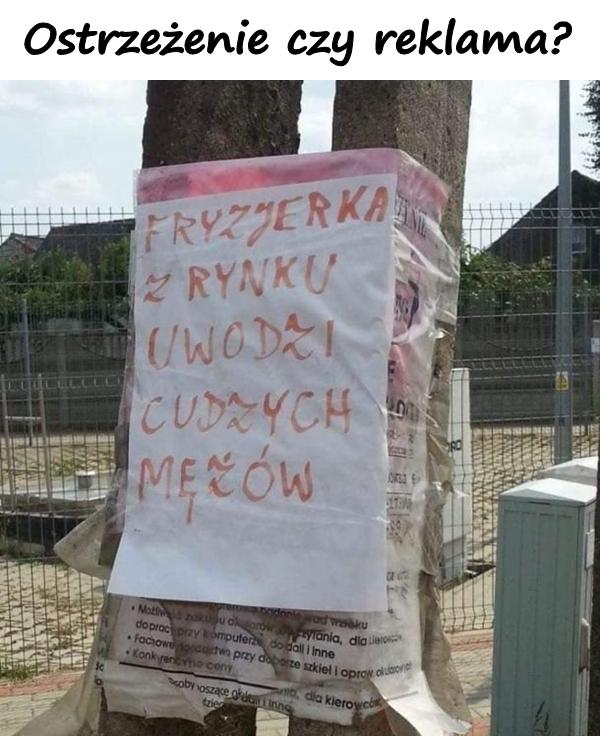 Ostrzeżenie czy reklama?
FRYZJERKA
Z RYNKU
UWODZI
CUDZYCH
MĘŻÓW
wad wzroku
• Możliwość zakupu okularów czytania, dla kierowców
do pracy przy komputerze, do dali i inne
• Fachowe doradztwo przy doborze szkieł i opraw okularowych
• Konkurencyjne ceny
osoby noszące okulary
dla kierowców
dali i inne